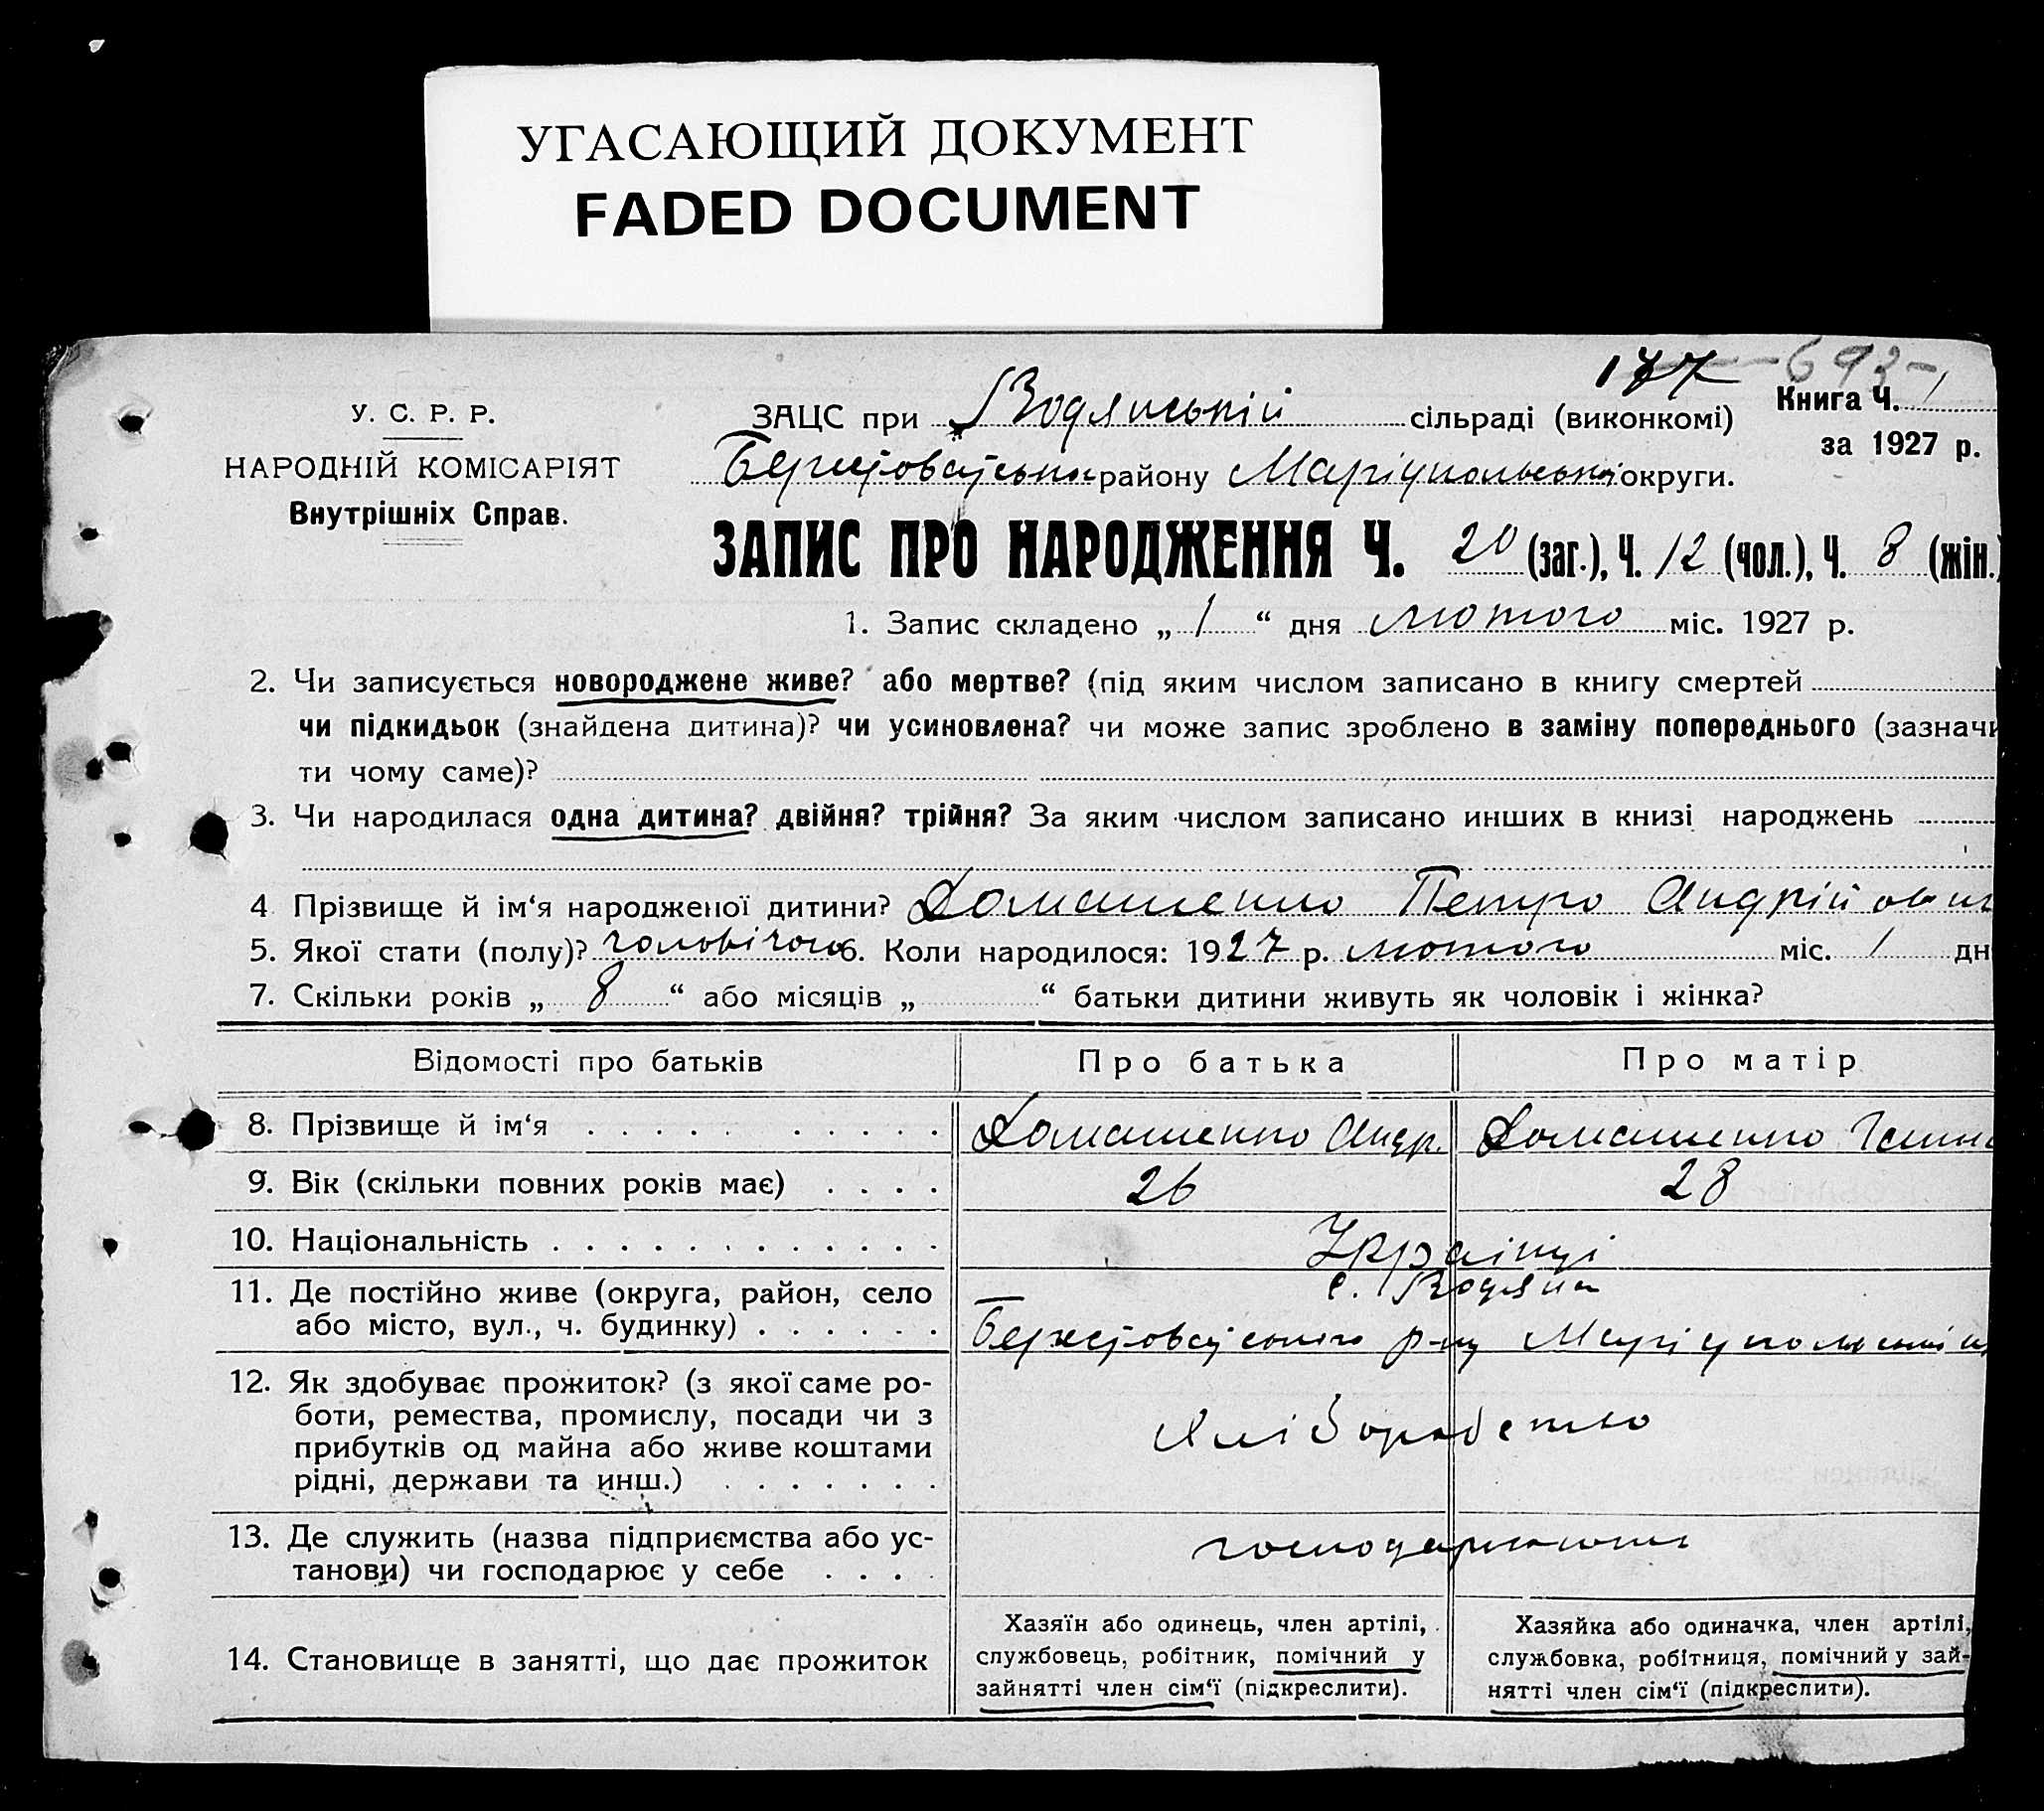 УГАСАЮЩИЙ ДОКУМЕНТ
FADED DOCUMENT
177 -693-
У. С. Р. Р.
НАРОДНІЙ КОМІСАРІЯТ
Внутрішніх Справ.
ЗАЦС при Водянській сільраді (виконкомі)
Книга Ч. 1
за 1927 р.
району Маріупольської округи.
ЗАПИС ПРО НАРОДЖЕННЯ Ч. 20 (заг.), Ч. 12 (чол.), Ч. 8 (жін.)
1. Запис складено „ 1 “ дня лютого міс. 1927 р.
2. Чи записується новороджене живе? або мертве? (під яким числом записано в книгу смертей
чи підкидьок (знайдена дитина)? чи усиновлена? чи може запис зроблено в заміну попереднього (зазначи
ти чому саме)?
3. Чи народилася одна дитина? двійня? трійня? За яким числом записано инших в книзі народжень
4 Прізвище й ім‘я народженої дитини? Домашенко Петро Андрійович
5. Якої стати (полу)? чоловічого 6. Коли народилося: 1927 р. лютого міс. 1 дн
7. Скільки років „ 8 “ або місяців „ “ батьки дитини живуть як чоловік і жінка?
Відомості про батьків Про батька Про матір
8. Прізвище й ім‘я Домашенко Андр. Домашенко Ганна
9. Вік (скільки повних років має) 26 28
10. Національність Українці
11. Де постійно живе (округа, район, село с. Водяна
або місто, вул., ч. будинку) р-ну
12. Як здобуває прожиток? (з якої саме ро-
боти, ремества, промислу, посади чи з
прибутків од майна або живе коштами
рідні, держави та инш.)
Хліборобство
13. Де служить (назва підприємства або ус-
танови) чи господарює у себе
господарюють
14. Становище в занятті, що дає прожиток
Хазяїн або одинець, член артілі,
службовець, робітник, помічний у
зайнятті член сім‘ї (підкреслити).
Хазяйка або одиначка, член артілі,
службовка, робітниця, помічний у зай-
нятті член сім‘ї (підкреслити).